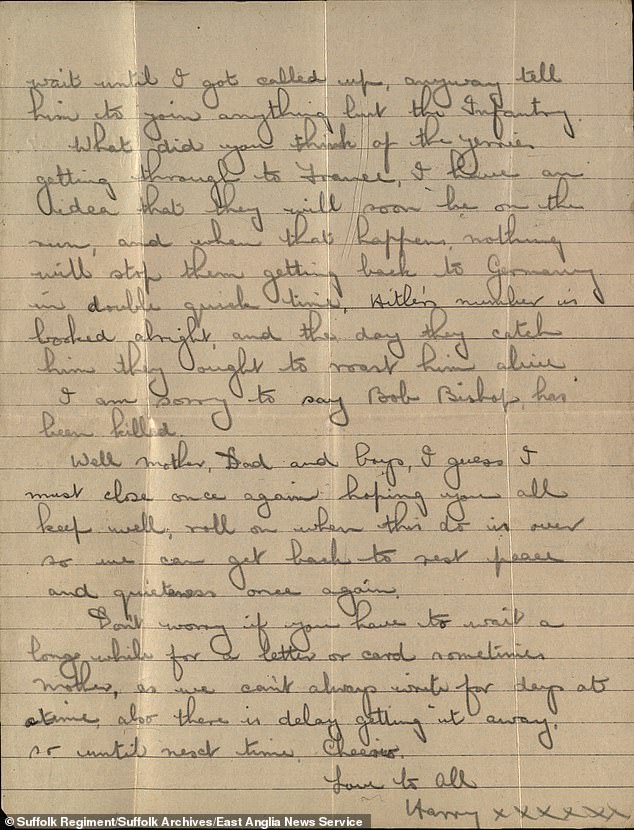 wait until I got called up, anyway tell
him to join anything but the Infantry.
What did you think of the yerries
getting through to France, I have an
idea that they will soon be on the
run, and when that happens, nothing
will stop them getting back to Germany
in double quick time, Hitler's number is
booked alright, and the day they catch
him they ought to roast him alive
I am sorry to say Bob Bishop, has
been killed.
Well mother, Dad and boys, I guess I
must close once again hoping you all
keep well, roll on when this do is over
so we can get back to rest peace
and quietness once again.
Don't worry if you have to wait a
long while for a letter or card sometimes
mother, as we can't always write for days at
a time, also there is delay getting it away.
so until next time, Cheerio.
Love to All
Harry xxxxxx
©Suffolk Regiment/Suffolk Archives/East Anglia News Service